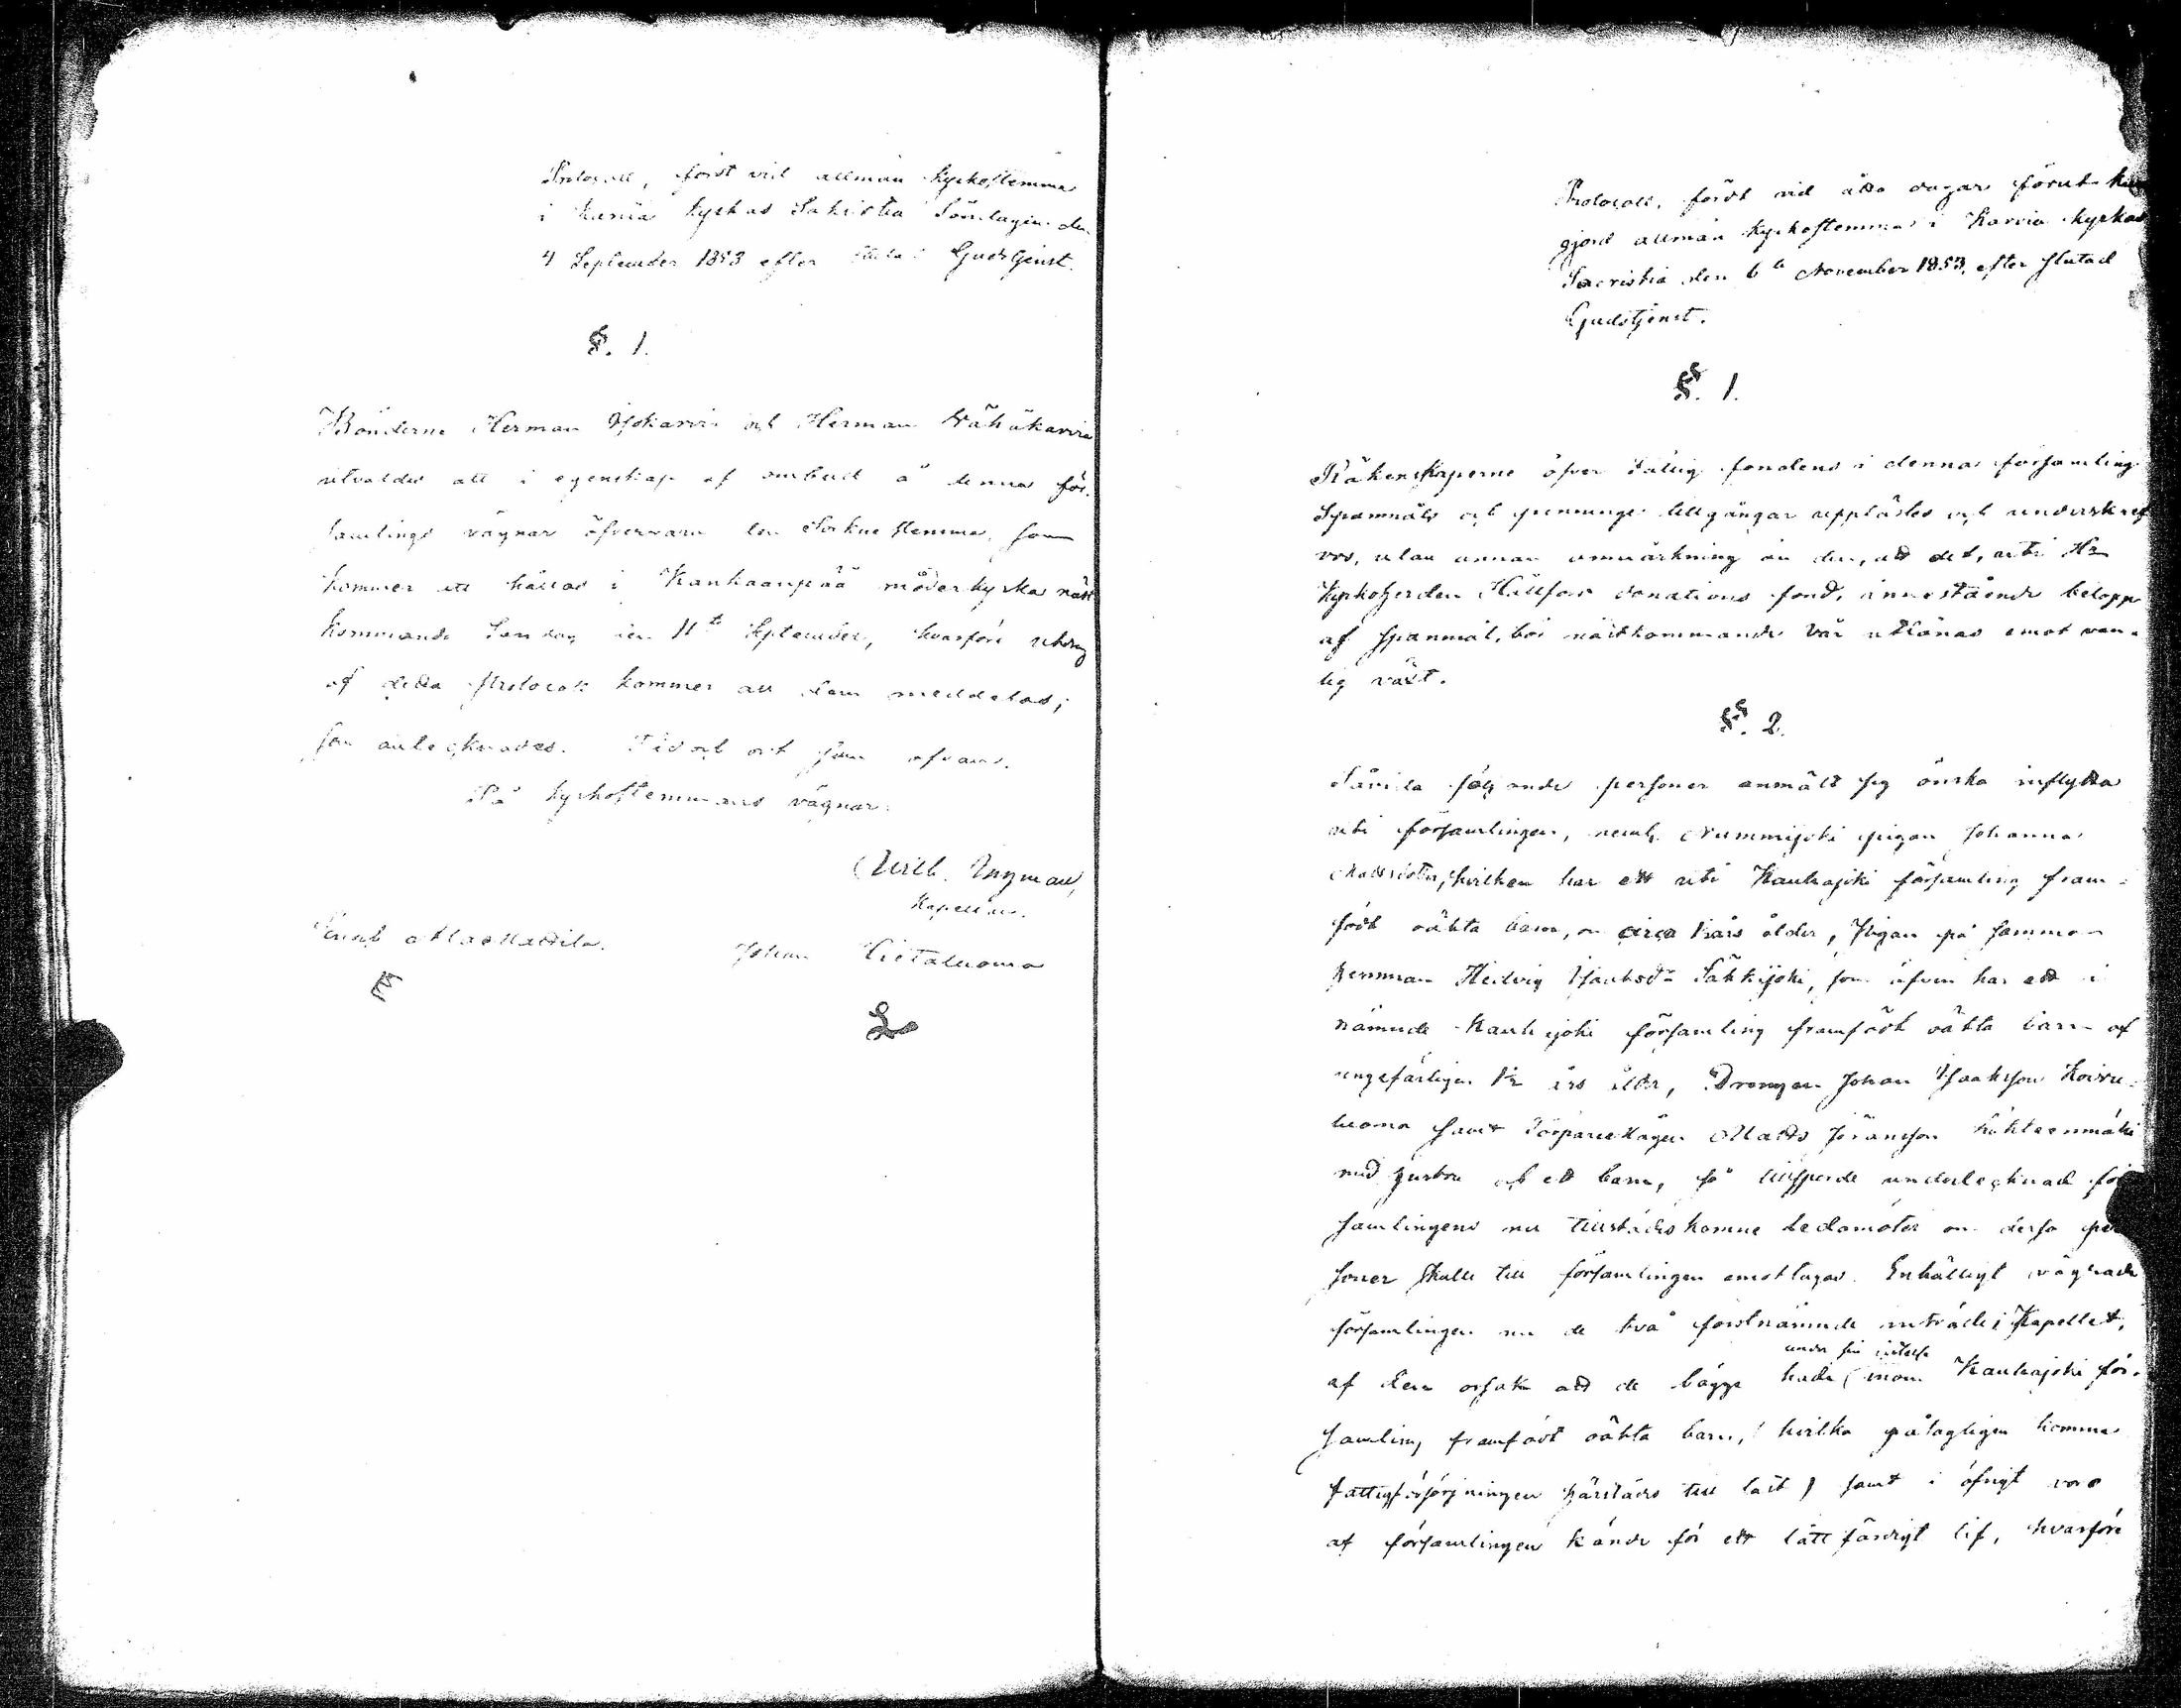 Protocoll, fördt vid allmän Kyrkostemma
i Karvia Kyrkas Sakristia Söndagen den
4 September 1853 efter slutad Gudstjenst.
§. 1.
Bönderne Herman Ylikarvia och Herman Vähäkarvia
utvaldes att i egenskap af ombud å denna för-
samlings vägnar öfvervara den Sockne stemma, som
kommer att hållas i Kankaanpää moderkyrka näst
kommande Söndag den 11te September, hvarföre utdrag
af detta protocoll kommer att dem meddelas;
som antecknades. Tid och ort som ofvan.
På Kyrkostemmans vägnar:
Wilh. Ingman,
Kapellan.
Jacob Ala Mattila. Johan Kietaluoma
Protocoll, fördt vid åtta dagar förut kun
gjord allmän Kyrkostemma i Karvia Kyrkas
Sacristia den 6te November 1853, efter slutad
Gudstjenst.
§. 1.
Räkenskaperne öfver Fattig fondens i denna församling
Spannmåls och penninge tillgångar upplästes och underskref
vos, utan annan anmärkning än den, att det, uti Hr
Kyrkoherden Hällfors donations fond, innestående belopp
af Spanmål, bör nästkommande vår utlånas emot van-
lig växt.
§. 2.
Såvida följande personer anmält sig önska inflytta
uti församlingen, neml. Nummijoki pigan Johanna
Mattsdotter, hvilken har ett uti Kauhajoki församling fram-
födt oäkta barn, om circa års ålder, Pigan på samma
hemman Hedvig Isaksdr Säkkijoki, som äfven har ett i
nämnde Kauhajoki församling framfödt oäkta barn af
ungefärligen 1½ års ålder, Drengen Johan Isaksson Koivu-
luoma samt Torpare Mågen Matts Jöransson Kähteenmäki
med hustru och ett barn, så tillsporde undertecknad för
samlingens nu tillstädeskomne Ledamöter om dessa per
soner skulle till församlingen emottagas. Enhälligt vägrade
församlingen nu de två förstnämnde inträde i Kapellet,
under sin vistelse
af den orsak att de bägge hade inom Kauhajoki för-
samling framfödt oäkta barn, (hvilka påtagligen komma
fattigförsörjningen härstädes till last) samt i öfrigt voro
af församlingen kände för ett lättfärdigt lif, hvarföre